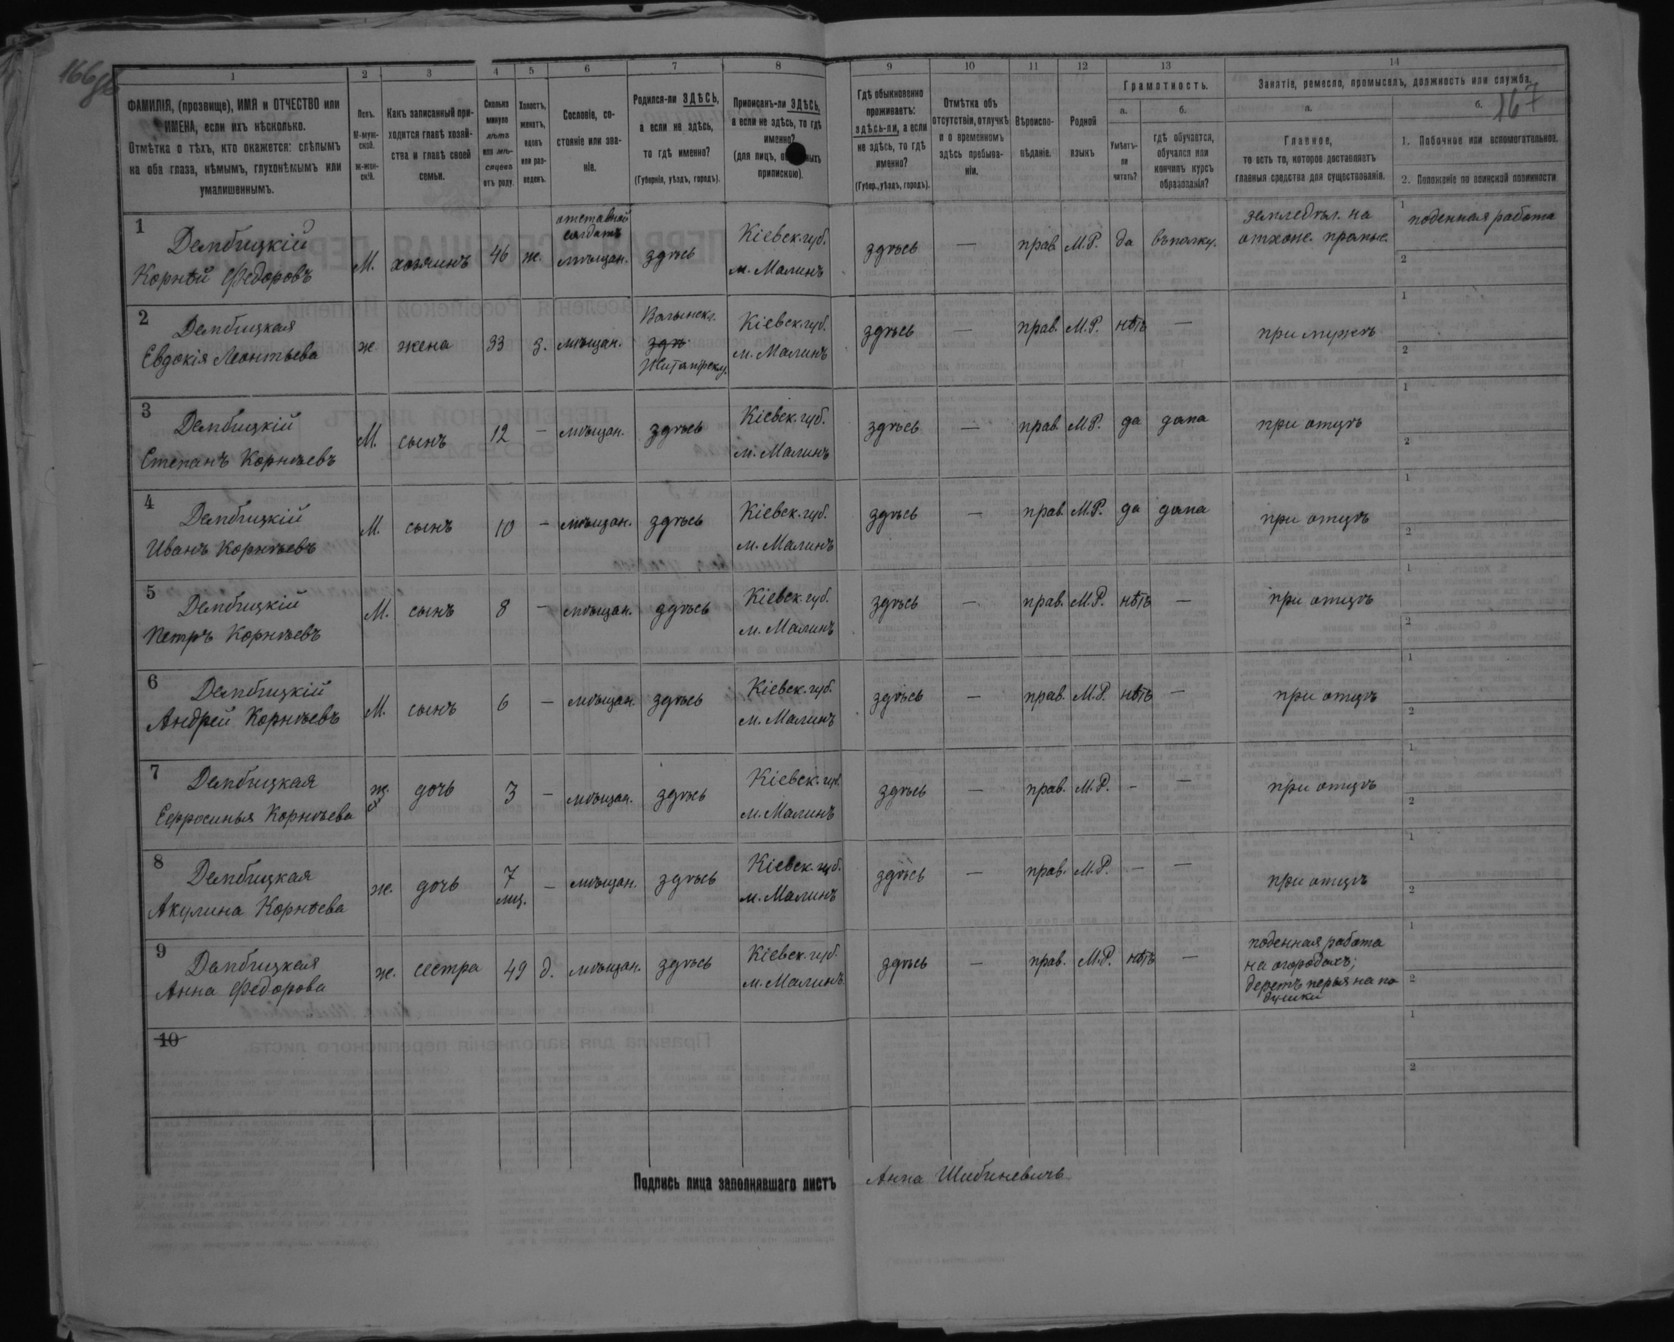 166об
167
1 2 3 4 5 6 7 8 9 10 11 12 13 14
ФАМИЛІЯ, (прозвище), ИМЯ и ОТЧЕСТВО или
ИМЕНА, если ихъ нѣсколько.
Отмѣтка о тѣхъ, кто окажется: слѣпымъ
на оба глаза, нѣмымъ, глухонѣмымъ или
умалишеннымъ.
Полъ.
М-муж-
ской.
Ж-жен-
скій.
Какъ записанный при-
ходится главѣ хозяй-
ства и главѣ своей
семьи.
Сколько
минуло
лѣтъ
или мѣ-
сяцевъ
отъ роду.
Холостъ,
женатъ,
вдовъ
или раз-
веденъ.
Сословіе, со-
стояніе или зва-
ніе.
Родился-ли ЗДѢСЬ,
а если не здѣсь,
то гдѣ именно?
(Губернія, уѣздъ, городъ).
Приписанъ-ли ЗДѢСЬ,
а если не здѣсь, то гдѣ
именно?
(для лицъ,
припискою).
Гдѣ обыкновенно
проживаетъ:
здѣсь-ли, а если
не здѣсь, то гдѣ
именно?
(Губер., уѣздъ, городъ).
Отмѣтка объ
отсутствіи, отлучкѣ
и о временномъ
здѣсь пребыва-
ніи.
Вѣроиспо-
вѣданіе.
Родной
языкъ
Грамотность.
а.
Умѣетъ-
ли
читать?
б.
гдѣ обучается,
обучался или
кончилъ курсъ
образованія?
Занятіе, ремесло, промыселъ, должность или служба.
а.
Главное,
то есть то, которое доставляетъ
главныя средства для существованія.
б.
1. Побочное или вспомогательное.
2. Положеніе по воинской повинности
1
Дембицкій
Корнѣй Федоровъ
М. хозяинъ 46 ж.
отставной
солдатъ
мѣщан.
здѣсь
Кіевск. губ.
м. Малинъ
здѣсь — прав. М.Р. да въ полку.
земледѣл. на
1 поденная работа
2
2
Дембицкая
Евдокія Леонтьева
ж жена 33 з. мѣщан.
Волынск.
Житомірск. у.
Кіевск. губ.
м. Малинъ
здѣсь — прав. М.Р. нѣтъ — при мужѣ
1
2
3
Дембицкій
Степанъ Корнѣевъ
М. сынъ 12 — мѣщан. здѣсь
Кіевск. губ.
м. Малинъ
здѣсь — прав. М.Р. да дома при отцѣ
1
2
4
Дембицкій
Иванъ Корнѣевъ
М. сынъ 10 — мѣщан. здѣсь
Кіевск. губ.
м. Малинъ
здѣсь — прав. М.Р. да дома при отцѣ
1
2
5
Дембицкій
Петръ Корнѣевъ
М. сынъ 8 — мѣщан. здѣсь
Кіевск. губ.
м. Малинъ
здѣсь — прав. М.Р. нѣтъ — при отцѣ
1
2
6
Дембицкій
Андрей Корнѣевъ
М. сынъ 6 — мѣщан. здѣсь
Кіевск. губ.
м. Малинъ
здѣсь — прав. М.Р. нѣтъ — при отцѣ
1
2
7
Дембицкая
Ефросинья Корнѣева
ж. дочь 3 — мѣщан. здѣсь
Кіевск. губ.
м. Малинъ
здѣсь — прав. М.Р. – — при отцѣ
1
2
8
Дембицкая
Акулина Корнѣева
ж. дочь 7 мц. — мѣщан. здѣсь
Кіевск. губ.
м. Малинъ
здѣсь — прав. М.Р. — — при отцѣ
1
2
9
Дембицкая
Анна Федорова
ж. сестра 49 д. мѣщан. здѣсь
Кіевск. губ.
м. Малинъ
здѣсь — прав. М.Р. нѣтъ —
поденная работа
на огородахъ;
деретъ перья на по
душки
1
2
10
1
2
Подпись лица заполнявшаго листъ Анна Шибиневичъ